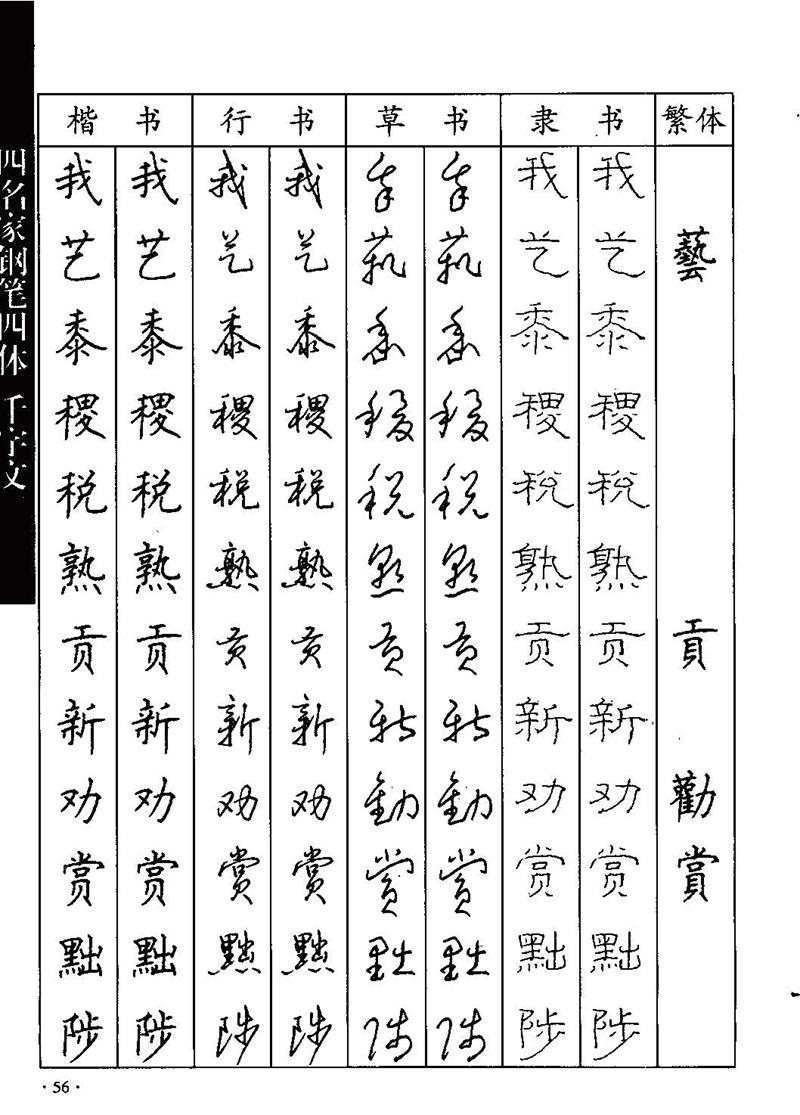 四名家钢笔四体 千字文
楷书 行书 草书 隶书 繁体
我 我 我 我 我 我 我 我
艺 艺 艺 艺 艺 艺 艺 艺 藝
黍 黍 黍 黍 黍 黍 黍 黍
稷 稷 稷 稷 稷 稷 稷 稷
税 税 税 税 税 税 税 税
熟 熟 熟 熟 熟 熟 熟 熟
贡 贡 贡 贡 贡 贡 贡 贡 貢
新 新 新 新 新 新 新 新
劝 劝 劝 劝 勸 勸 劝 劝 勸
赏 赏 赏 赏 赏 赏 赏 赏 賞
黜 黜 黜 黜 黜 黜 黜 黜
陟 陟 陟 陟 陟 陟 陟 陟
·56·